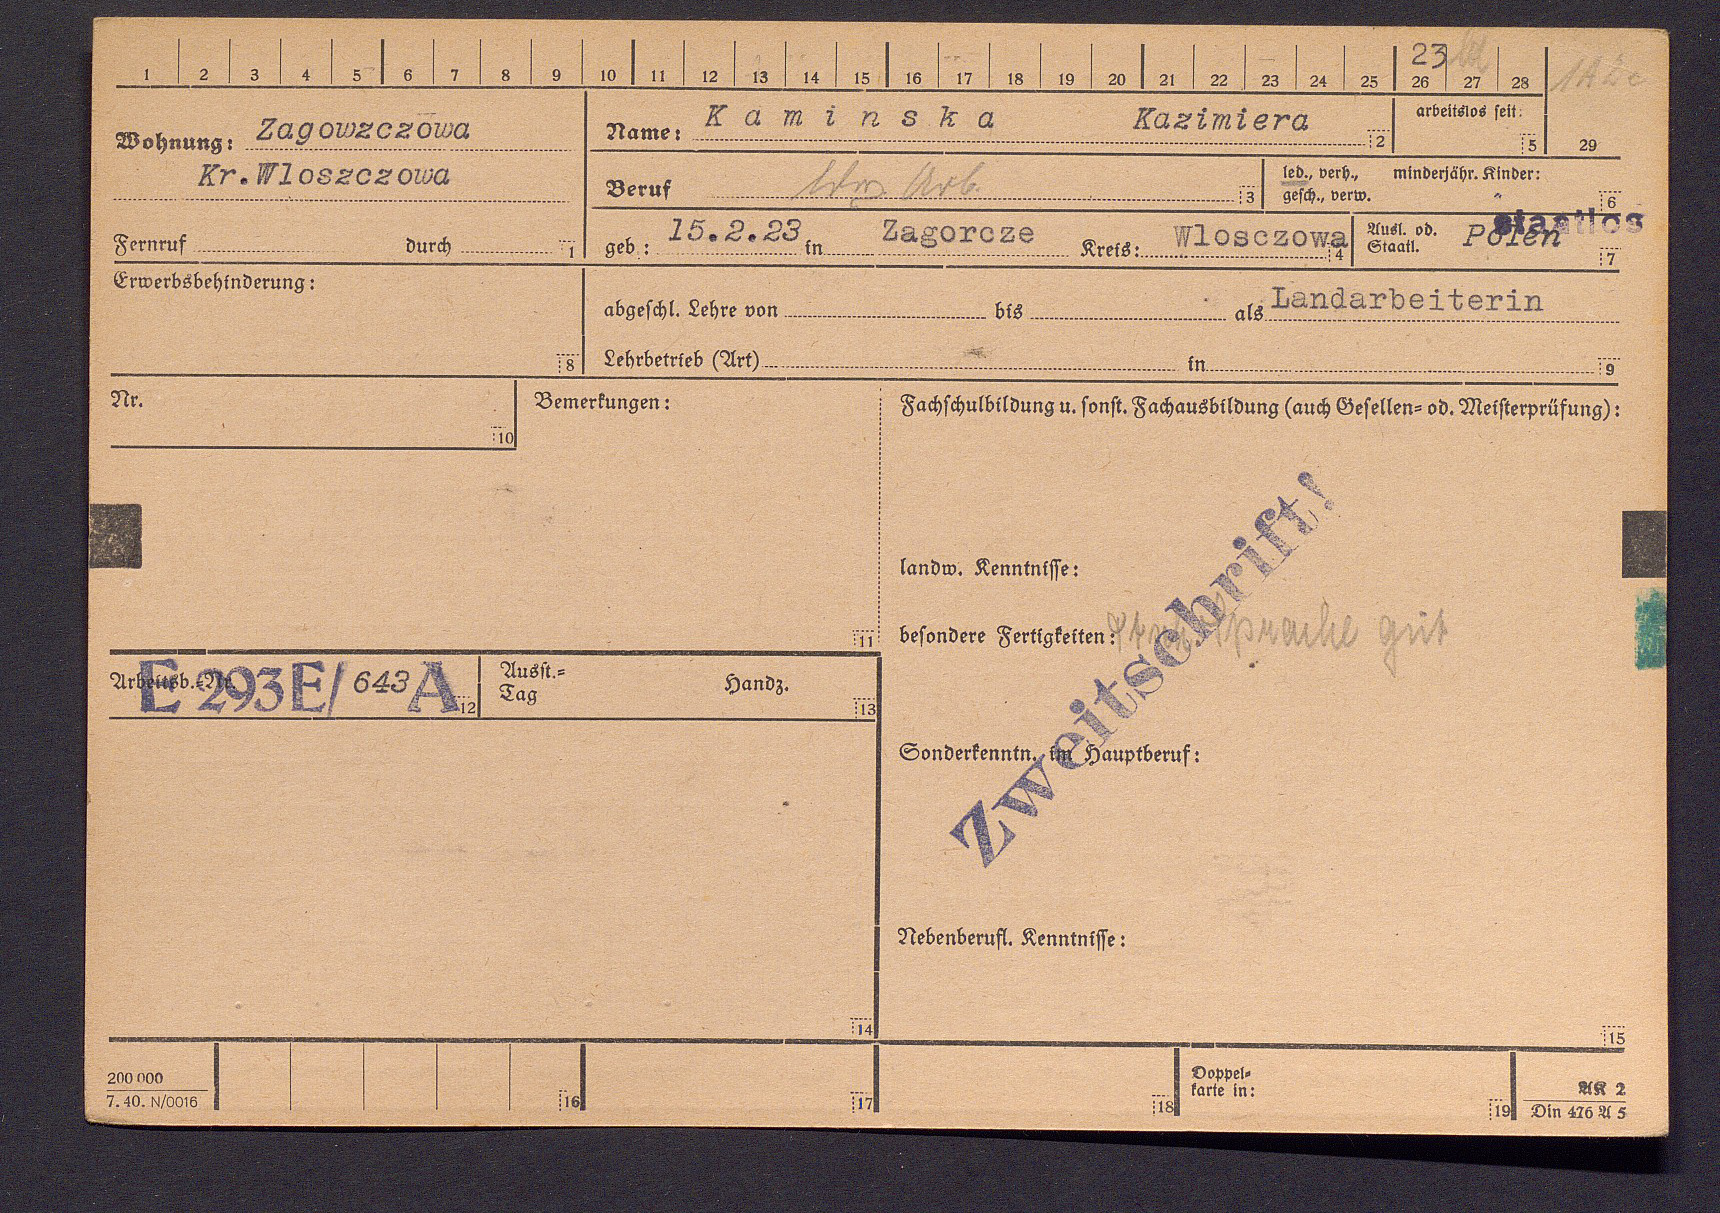 23
1 2 3 4 5 6 7 8 9 10 11 12 13 14 15 16 17 18 19 20 21 22 23 24 25 26 27 28
Wohnung: Zagowzczowa
Kr.Wloszczowa
Fernruf durch 1
Name: Kaminska Kazimiera 2
arbeitslos seit: 5
29
Beruf Arb. 3
led., verh., gesch., verw.
minderjähr. Kinder: 6
geb.: 15.2.23 in Zagorcze Kreis: Wlosczowa 4
Ausl. od. Staatl. Polen staatlos 7
Erwerbsbehinderung: 8
abgeschl. Lehre von bis als Landarbeiterin
Lehrbetrieb (Art) in 9
Nr. 10
Bemerkungen: 11
Fachschulbildung u. sonst. Fachausbildung (auch Gesellen= od. Meisterprüfung):
landw. Kenntnisse:
besondere Fertigkeiten: Sprache gut
Zweitschrift!
Arbeitsb.=Nr. E 293E/ 643 A 12
Ausst.=
Tag Handz. 13
Sonderkenntn. im Hauptberuf:
Nebenberufl. Kenntnisse:
14 15
200 000
7. 40. N/0016
16 17 18
Doppel=
karte in: 19
AK 2
Din 476 A 5